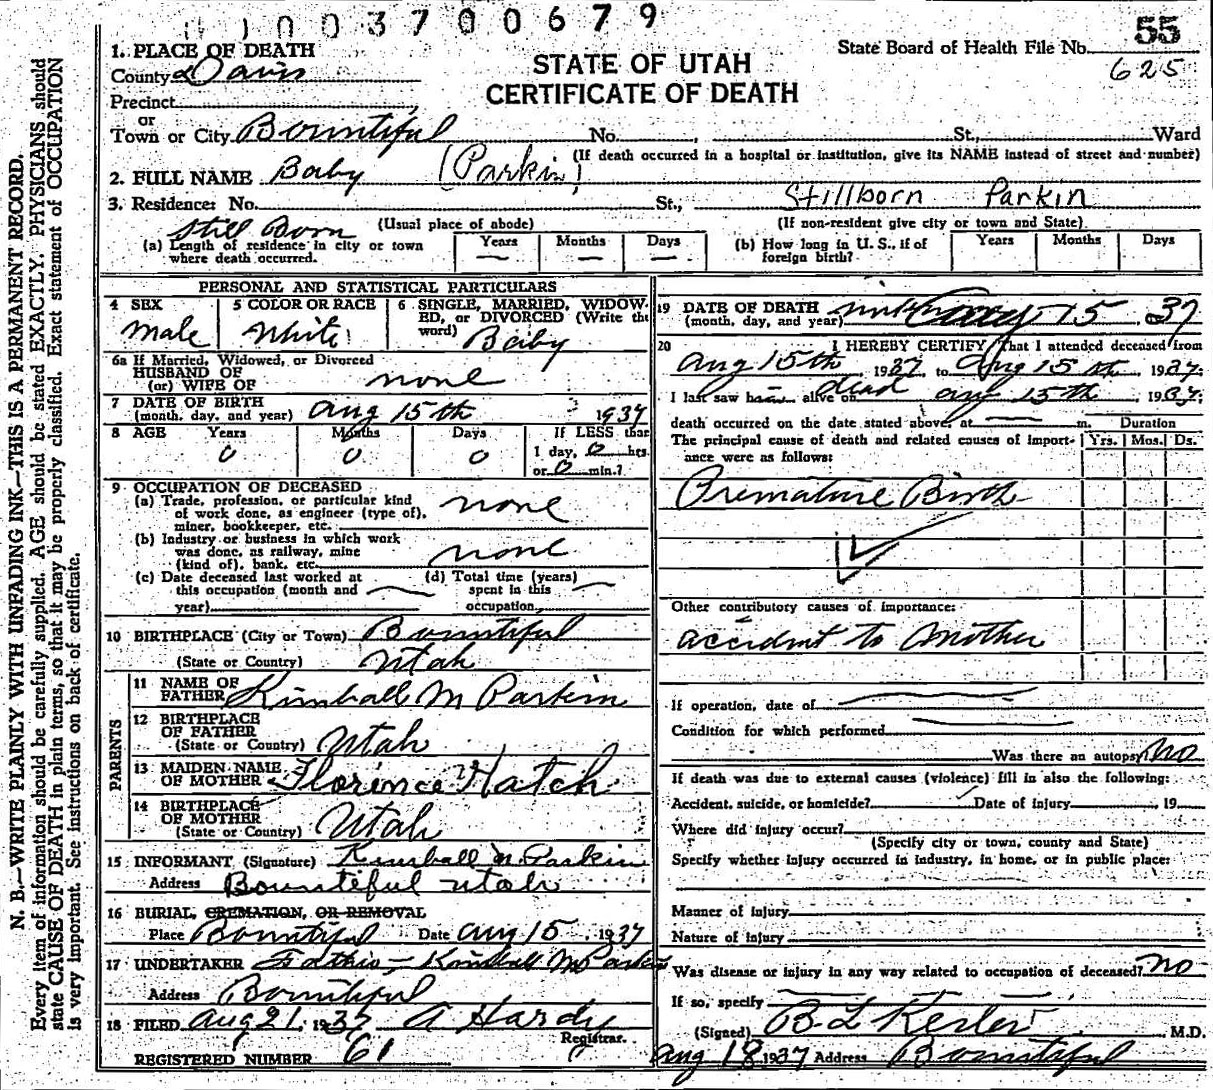 003700679
55
State Board of Health File No.
625
STATE OF UTAH
CERTIFICATE OF DEATH
N. B.—WRITE PLAINLY WITH UNFADING INK—THIS IS A PERMANENT RECORD.
Every item of information should be carefully supplied. AGE should be stated EXACTLY. PHYSICIANS should
state CAUSE OF DEATH in plain terms, so that it may be properly classified. Exact statement of OCCUPATION
is very important. See instructions on back of certificate.
1. PLACE OF DEATH
County Davis
Precinct
or
Town or City Bountiful No. St., Ward
(If death occurred in a hospital or institution, give its NAME instead of street and number)
2. FULL NAME Baby (Parkin)
3. Residence: No. St., Stillborn Parkin
Still Born (Usual place of abode) (If non-resident give city or town and State)
(a) Length of residence in city or town where death occurred. Years — Months — Days —
(b) How long in U. S., if of foreign birth? Years Months Days
PERSONAL AND STATISTICAL PARTICULARS
4 SEX Male
5 COLOR OR RACE White
6 SINGLE, MARRIED, WIDOW-
ED, or DIVORCED (Write the
word) Baby
6a If Married, Widowed, or Divorced
HUSBAND OF
(or) WIFE OF none
7 DATE OF BIRTH
(month, day, and year) Aug 15th 1937
8 AGE Years Months Days If LESS than
0 0 0 1 day, 0 hrs.
or 0 min.?
9 OCCUPATION OF DECEASED
(a) Trade, profession, or particular kind
of work done, as engineer (type of),
miner, bookkeeper, etc. none
(b) Industry or business in which work
was done, as railway, mine
(kind of), bank, etc. none
(c) Date deceased last worked at
this occupation (month and
year)
(d) Total time (years)
spent in this
occupation,
10 BIRTHPLACE (City or Town) Bountiful
(State or Country) Utah
PARENTS
11 NAME OF
FATHER Kimball M Parkin
12 BIRTHPLACE
OF FATHER
(State or Country) Utah
13 MAIDEN NAME
OF MOTHER Florence Hatch
14 BIRTHPLACE
OF MOTHER
(State or Country) Utah
15 INFORMANT (Signature) Kimball M. Parkin
Address Bountiful Utah
16 BURIAL, CREMATION, OR REMOVAL
Place Bountiful Date Aug 15 1937
17 UNDERTAKER Father — Kimball M Parkin
Address Bountiful
18 FILED Aug 21, 1937 A Hardy
Registrar.
REGISTERED NUMBER 61
19 DATE OF DEATH
(month, day, and year) Aug 15, 37
20 I HEREBY CERTIFY, That I attended deceased from
Aug 15th, 1937, to Aug 15th, 1937.
I last saw him alive on dead Aug 15th, 1937.
death occurred on the date stated above, at — m.
The principal cause of death and related causes of import-
ance were as follows:
Duration
Yrs. Mos. Ds.
Premature Birth
Other contributory causes of importance:
accident to Mother
If operation, date of
Condition for which performed
Was there an autopsy? No
If death was due to external causes (violence) fill in also the following:
Accident, suicide, or homicide? Date of injury , 19
Where did injury occur?
(Specify city or town, county and State)
Specify whether injury occurred in industry, in home, or in public place:
Manner of injury
Nature of injury
Was disease or injury in any way related to occupation of deceased? No
If so, specify
(Signed) B L Kesler M.D.
Aug 18 1937 Address Bountiful